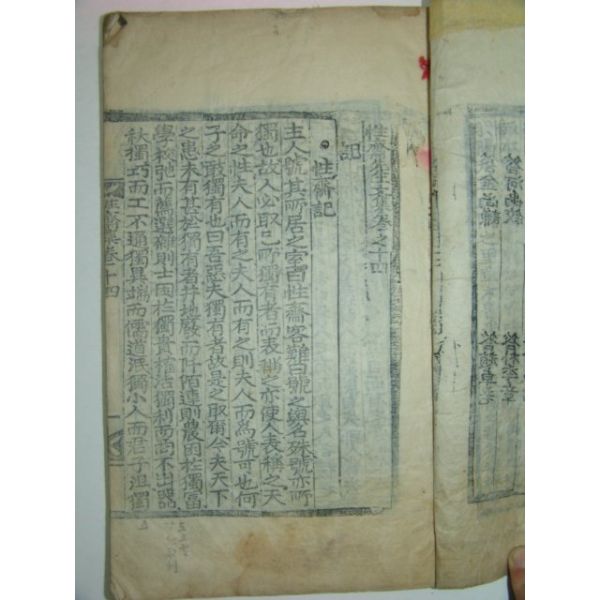 性齋先生文集卷之十四
記
性齋記
主人號其所居之室曰性齋客難曰號之與名殊號亦所
獨也故人必取己所獨有者而表稱之亦使人表稱之天
命之性夫人而有之夫人而有之則夫人而爲號可也何
子之敢獨有也曰吾惡夫獨有者故是之取爾今夫天下
之患未有甚於獨有者井地廢而阡陌達則農困於獨富
學校弛而薦選雜則士困於獨貴權沽獨利而商不出器
械獨巧而工不通獨異端而儒道泯獨小人而君子沮獨
性齋集卷十四